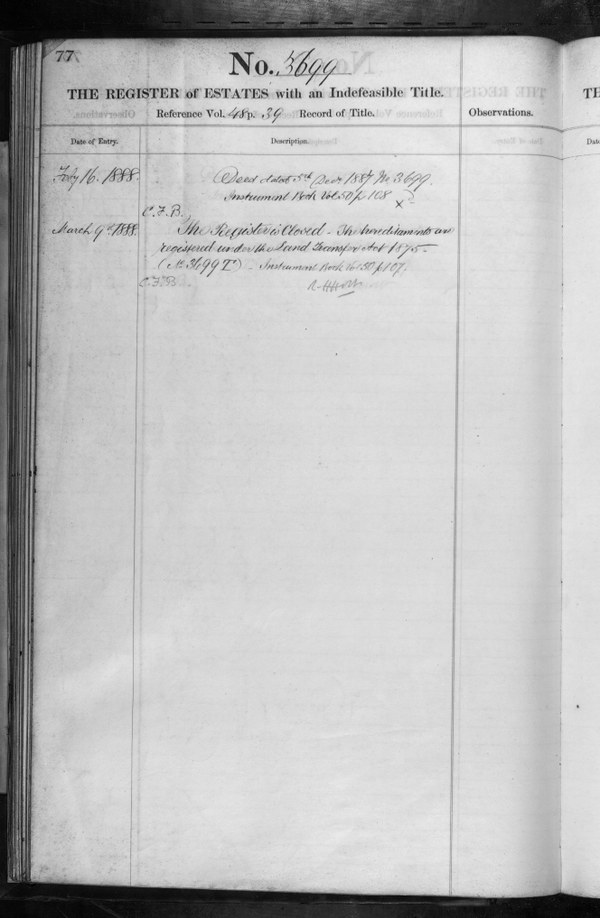 77
No. 3699
THE REGISTER of ESTATES with an Indefeasible Title.
Reference Vol. 48 p. 39 Record of Title.
Observations.
Date of Entry.
Description.
Feby 16. 1888.
Deed dated 3rd Decr 1887 No 3699.
Instrument Book Vol 50 p 108
C.F.B.
March 9th 1888.
The Register is Closed - The hereditaments are
registered under the Land Transfer Act 1875 -
(No 3699 T) - Instrument Book Vol 50 p 107.
C.F.B.
TH
Dat